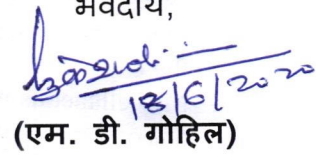 भवदीय,
18/6/2020
(एम. डी. गोहिल)